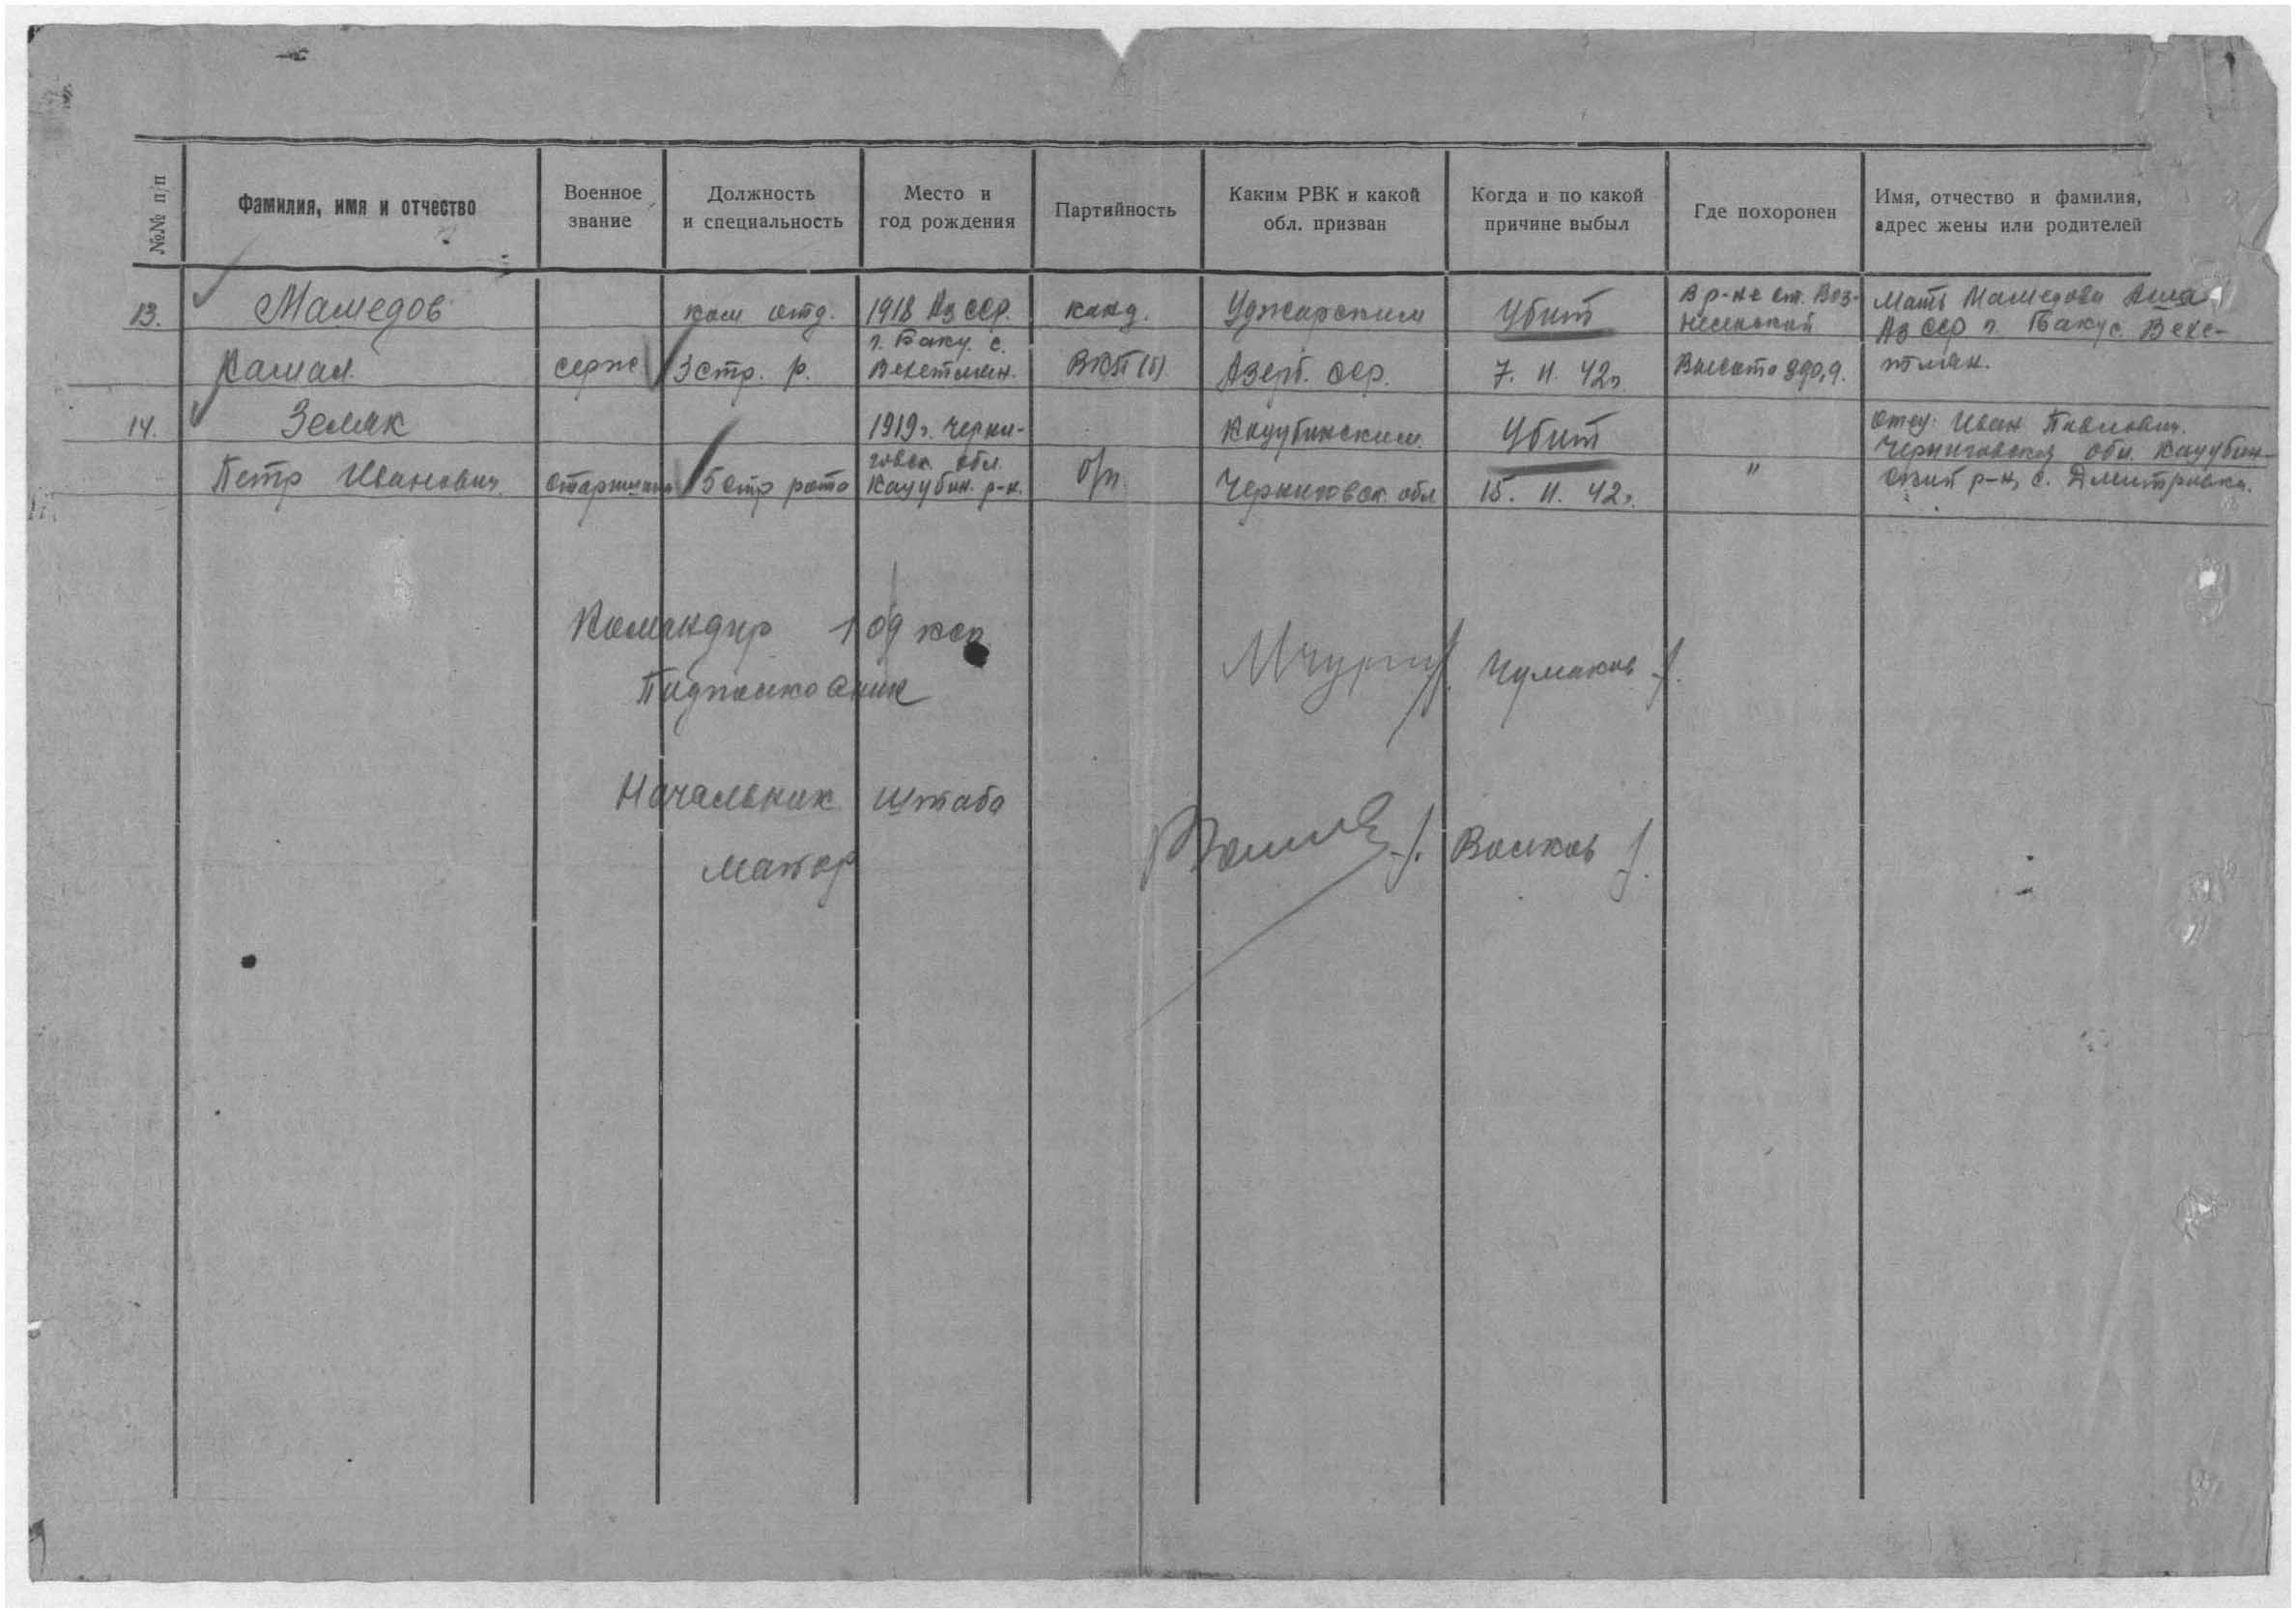 №№ п/п
Фамилия, имя и отчество
Военное
звание
Должность
и специальность
Место и
год рождения
Партийность
Каким РВК и какой
обл. призван
Когда и по какой
причине выбыл
Где похоронен
Имя, отчество и фамилия,
адрес жены или родителей
13.
Мамедов
Камал
серж
ком отд.
3 стр. р.
1918 Аз ССР.
г. Баку с.
Векстмин.
канд.
ВКП(б)
Уджарским
Азерб. ССР.
Убит
7. 11. 42г.
В р-не ст. Воз-
несенской
Высота 390,9.
Мать Мамедова
Аз ССР г. Баку с. Векс-
14.
Земак
Петр Иванович
старшина
5 стр рота
1919г. Черни-
говск. обл.
Кацубин. р-н.
б/п
Кацубинским
Черниговск. обл
Убит
15. 11. 42г.
"
Отец: Иван Павлович.
Черниговская обл. Кацубин-
ский р-н, с. Дмитровка.
Командир 1 од кср
Подполковник
/Чумаков/.
Начальник штаба
майор
/Волков/.